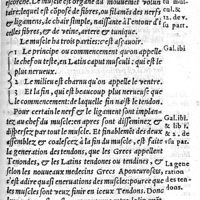 escorché. Le muscle est organe du mouvement volun
lequel est cōposé de fibres, ou filamēs des nerfs
& ligamens, le chair simple, naissante à l'entour d'i
celles fibres, & de veine, artere & tunique.
Le muscle ha trois parties: c'est asçavoir.
1 Le principe ou commencement qu'on appelle
le chef ou teste, en Latin caput musculi: qui est le
plus nerueux.
2 Le milieu est charnu qu'on appelle le ventre.
3 Et la fin, qui est beaucoup plus nerueuse que
le commencement: de laquelle fin est le tendon.
Pour certain le nerf & le ligament sont implan-
tez au chef du muscle: en apres sont disseminez &
disparsez par tout le muscle. Et finablemēt des deux
assemblez & coalescez à la fin du muscle, se faict la
generation des tendons, que les Grecs appellent
Tenondes, & les Latins tendones ou tendines, &
selon les nouueaux medecins Grecs Aponeuroses,
c'est adire quasi eneruations des muscles: pource que
les muscles sont veuz finir en iceux Tendons. Donc
ta mus
cul. &
12. de v.
sa part.
Gal. ibi
Gal. ibi.
& lib. 1.
& 12. d
v. s. par
La gene
ration
des ten
dons.